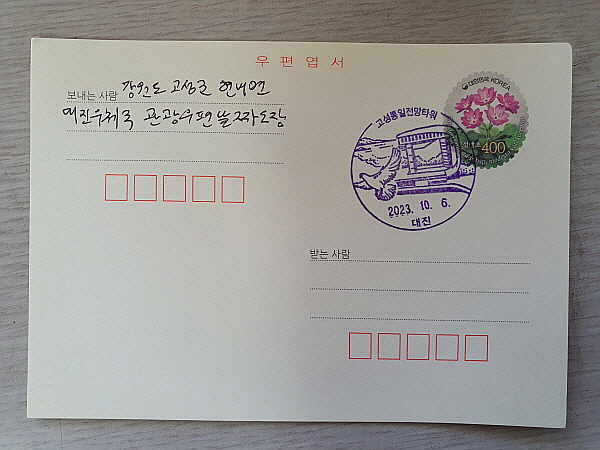 우편엽서
대한민국 KOREA
400
보내는 사람 강원도 고성군 현내면
대진우체국 관광우편날짜도장
고성통일전망타워
2023. 10. 6.
대진
받는 사람